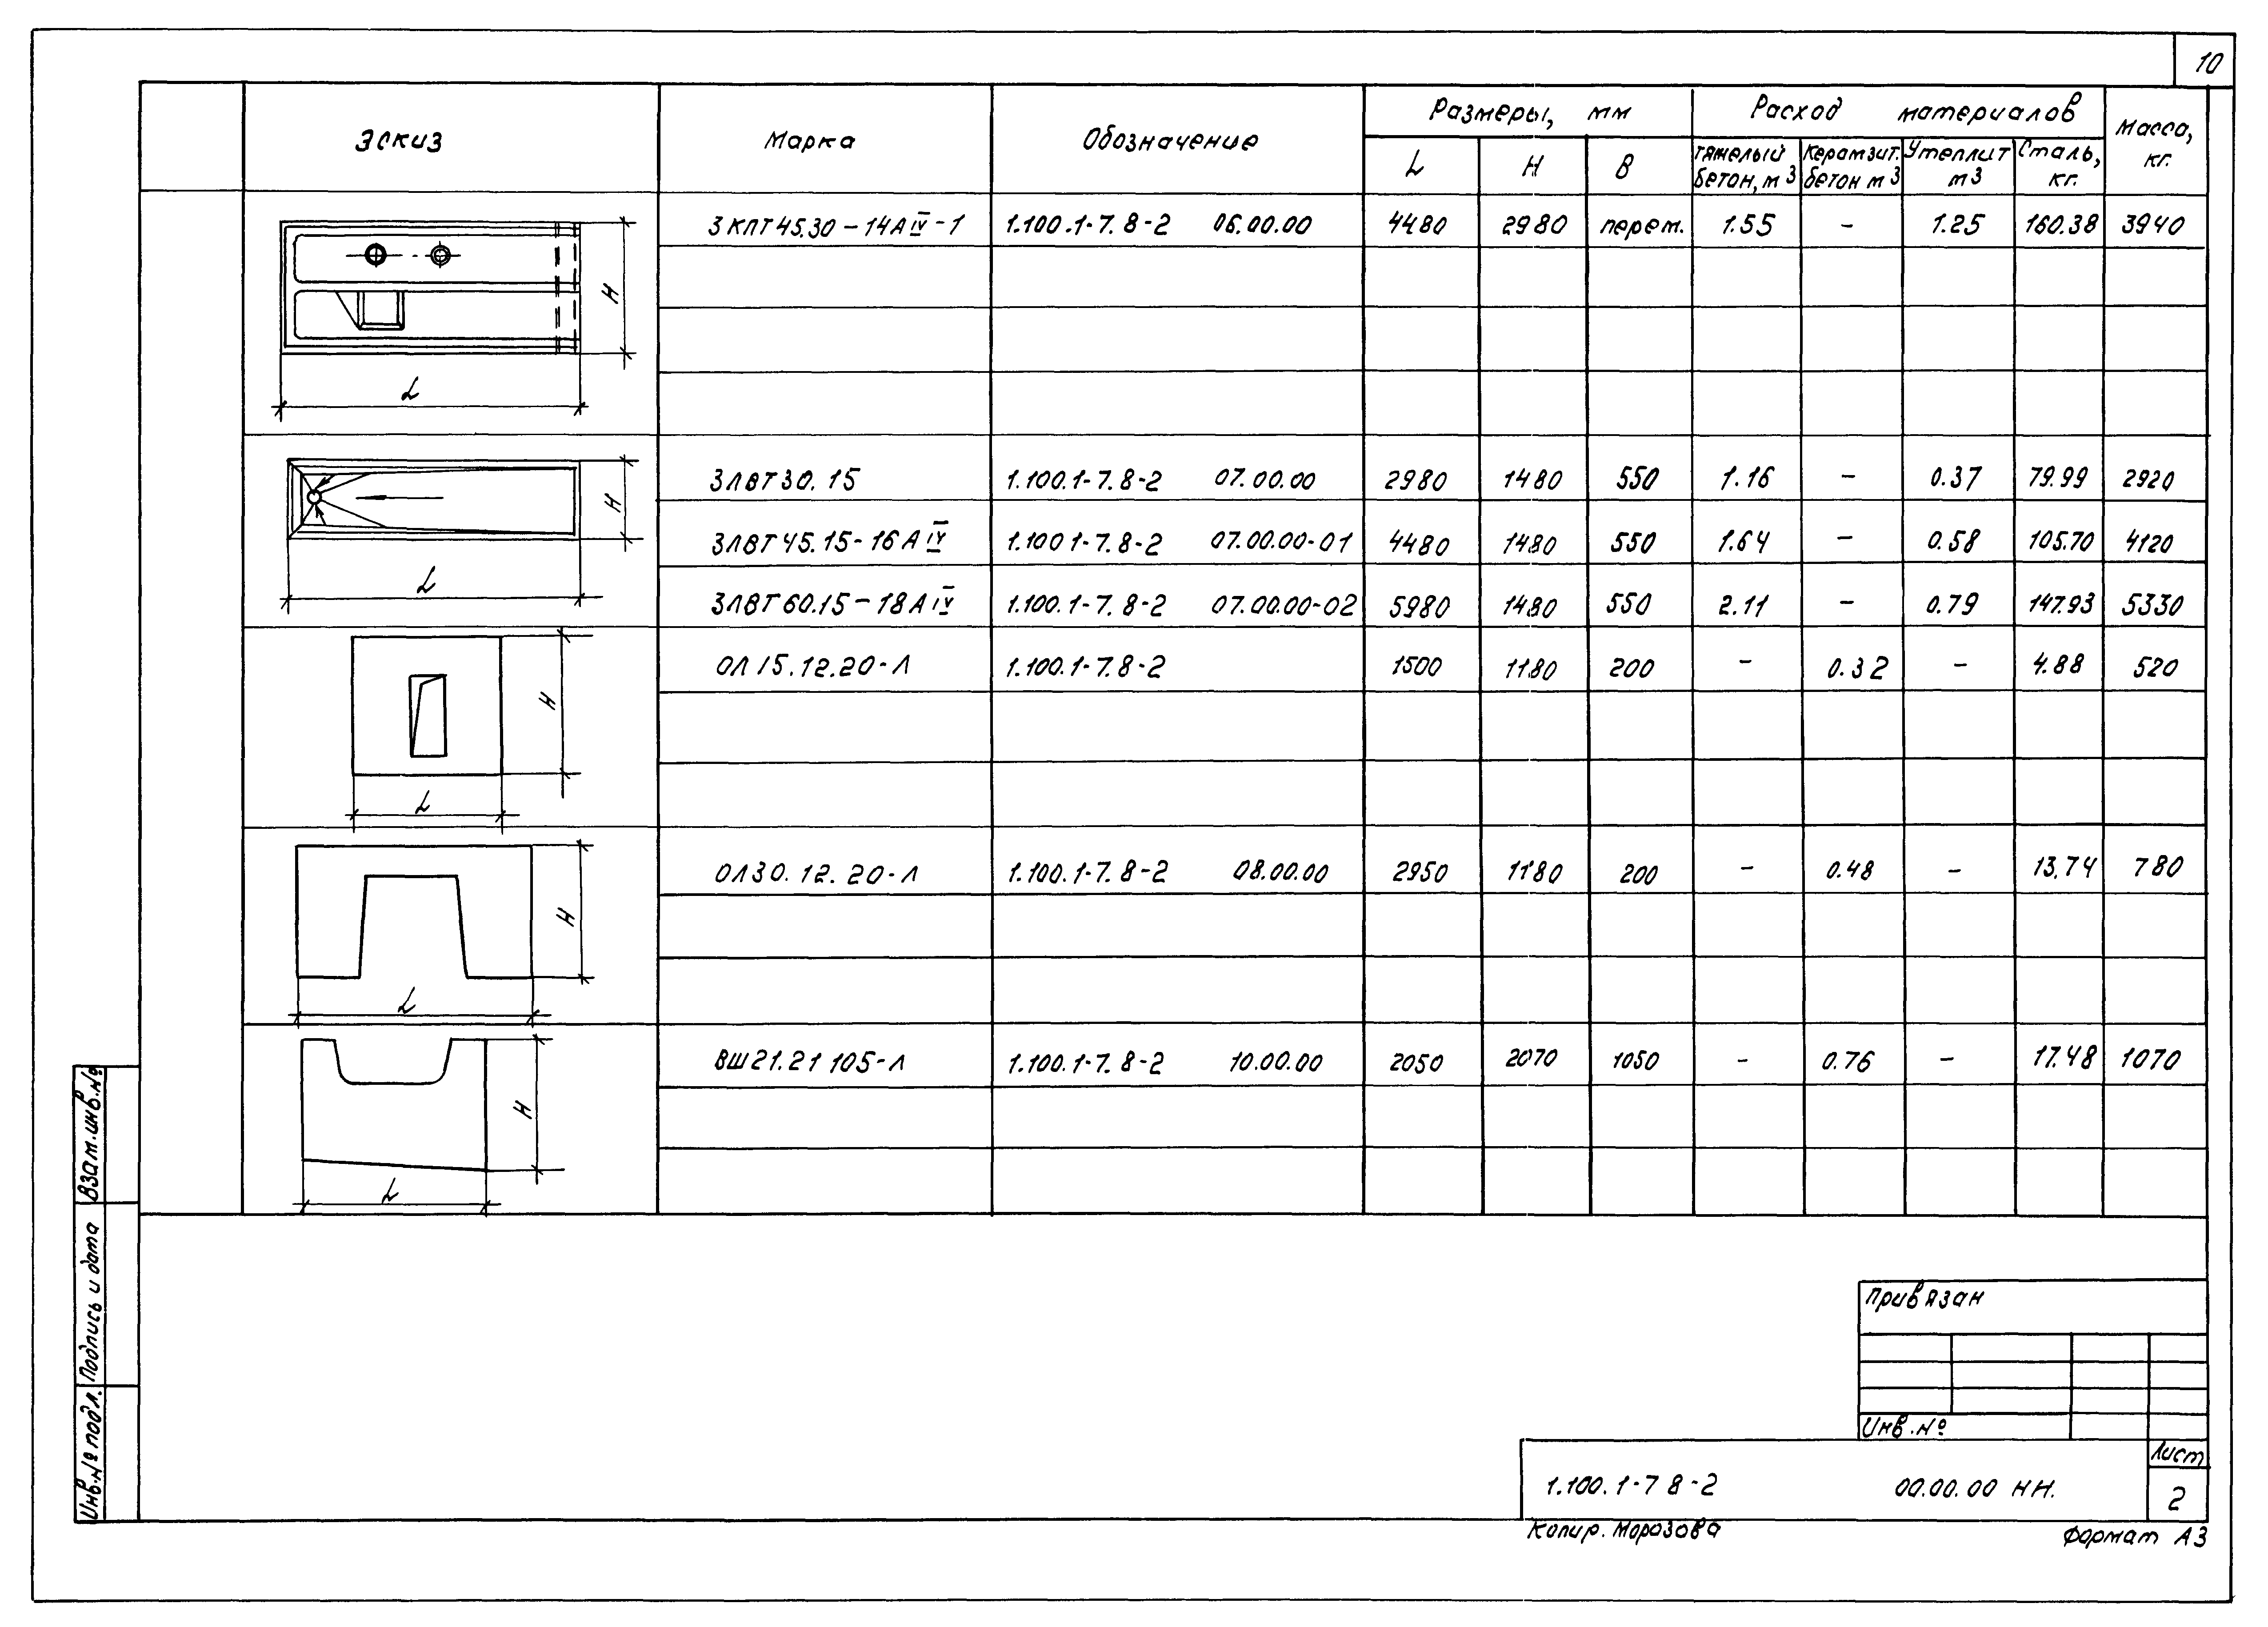 10
Эскиз Марка Обозначение Размеры, мм Расход материалов Масса, кг.
L H B тяжелый бетон, м3 Керамзит. бетон м3 Утеплит м3 Сталь, кг.
3КПТ45.30-14АIV-1 1.100.1-7.8-2 06.00.00 4480 2980 перем. 1.55 - 1.25 160.38 3940
H
L
3ЛВТ30.15 1.100.1-7.8-2 07.00.00 2980 1480 550 1.16 - 0.37 79.99 2920
H
3ЛВТ45.15-16АIV 1.100 1-7.8-2 07.00.00-01 4480 1480 550 1.64 - 0.58 105.70 4120
L
3ЛВТ60.15-18АIV 1.100.1-7.8-2 07.00.00-02 5980 1480 550 2.11 - 0.79 147.93 5330
ОЛ15.12.20-Л 1.100.1-7.8-2 1500 1180 200 - 0.32 - 4.88 520
H
L
ОЛ30.12.20-Л 1.100.1-7.8-2 08.00.00 2950 1180 200 - 0.48 - 13.74 780
H
L
ВШ21.21 105-Л 1.100.1-7.8-2 10.00.00 2050 2070 1050 - 0.76 - 17.48 1070
H
L
Взам.инв.№
Подпись и дата
Инв.№ подл.
Привязан
Инв.№
1.100.1-7 8-2 00.00.00 НН.
Лист
2
Копир. Морозова Формат А3